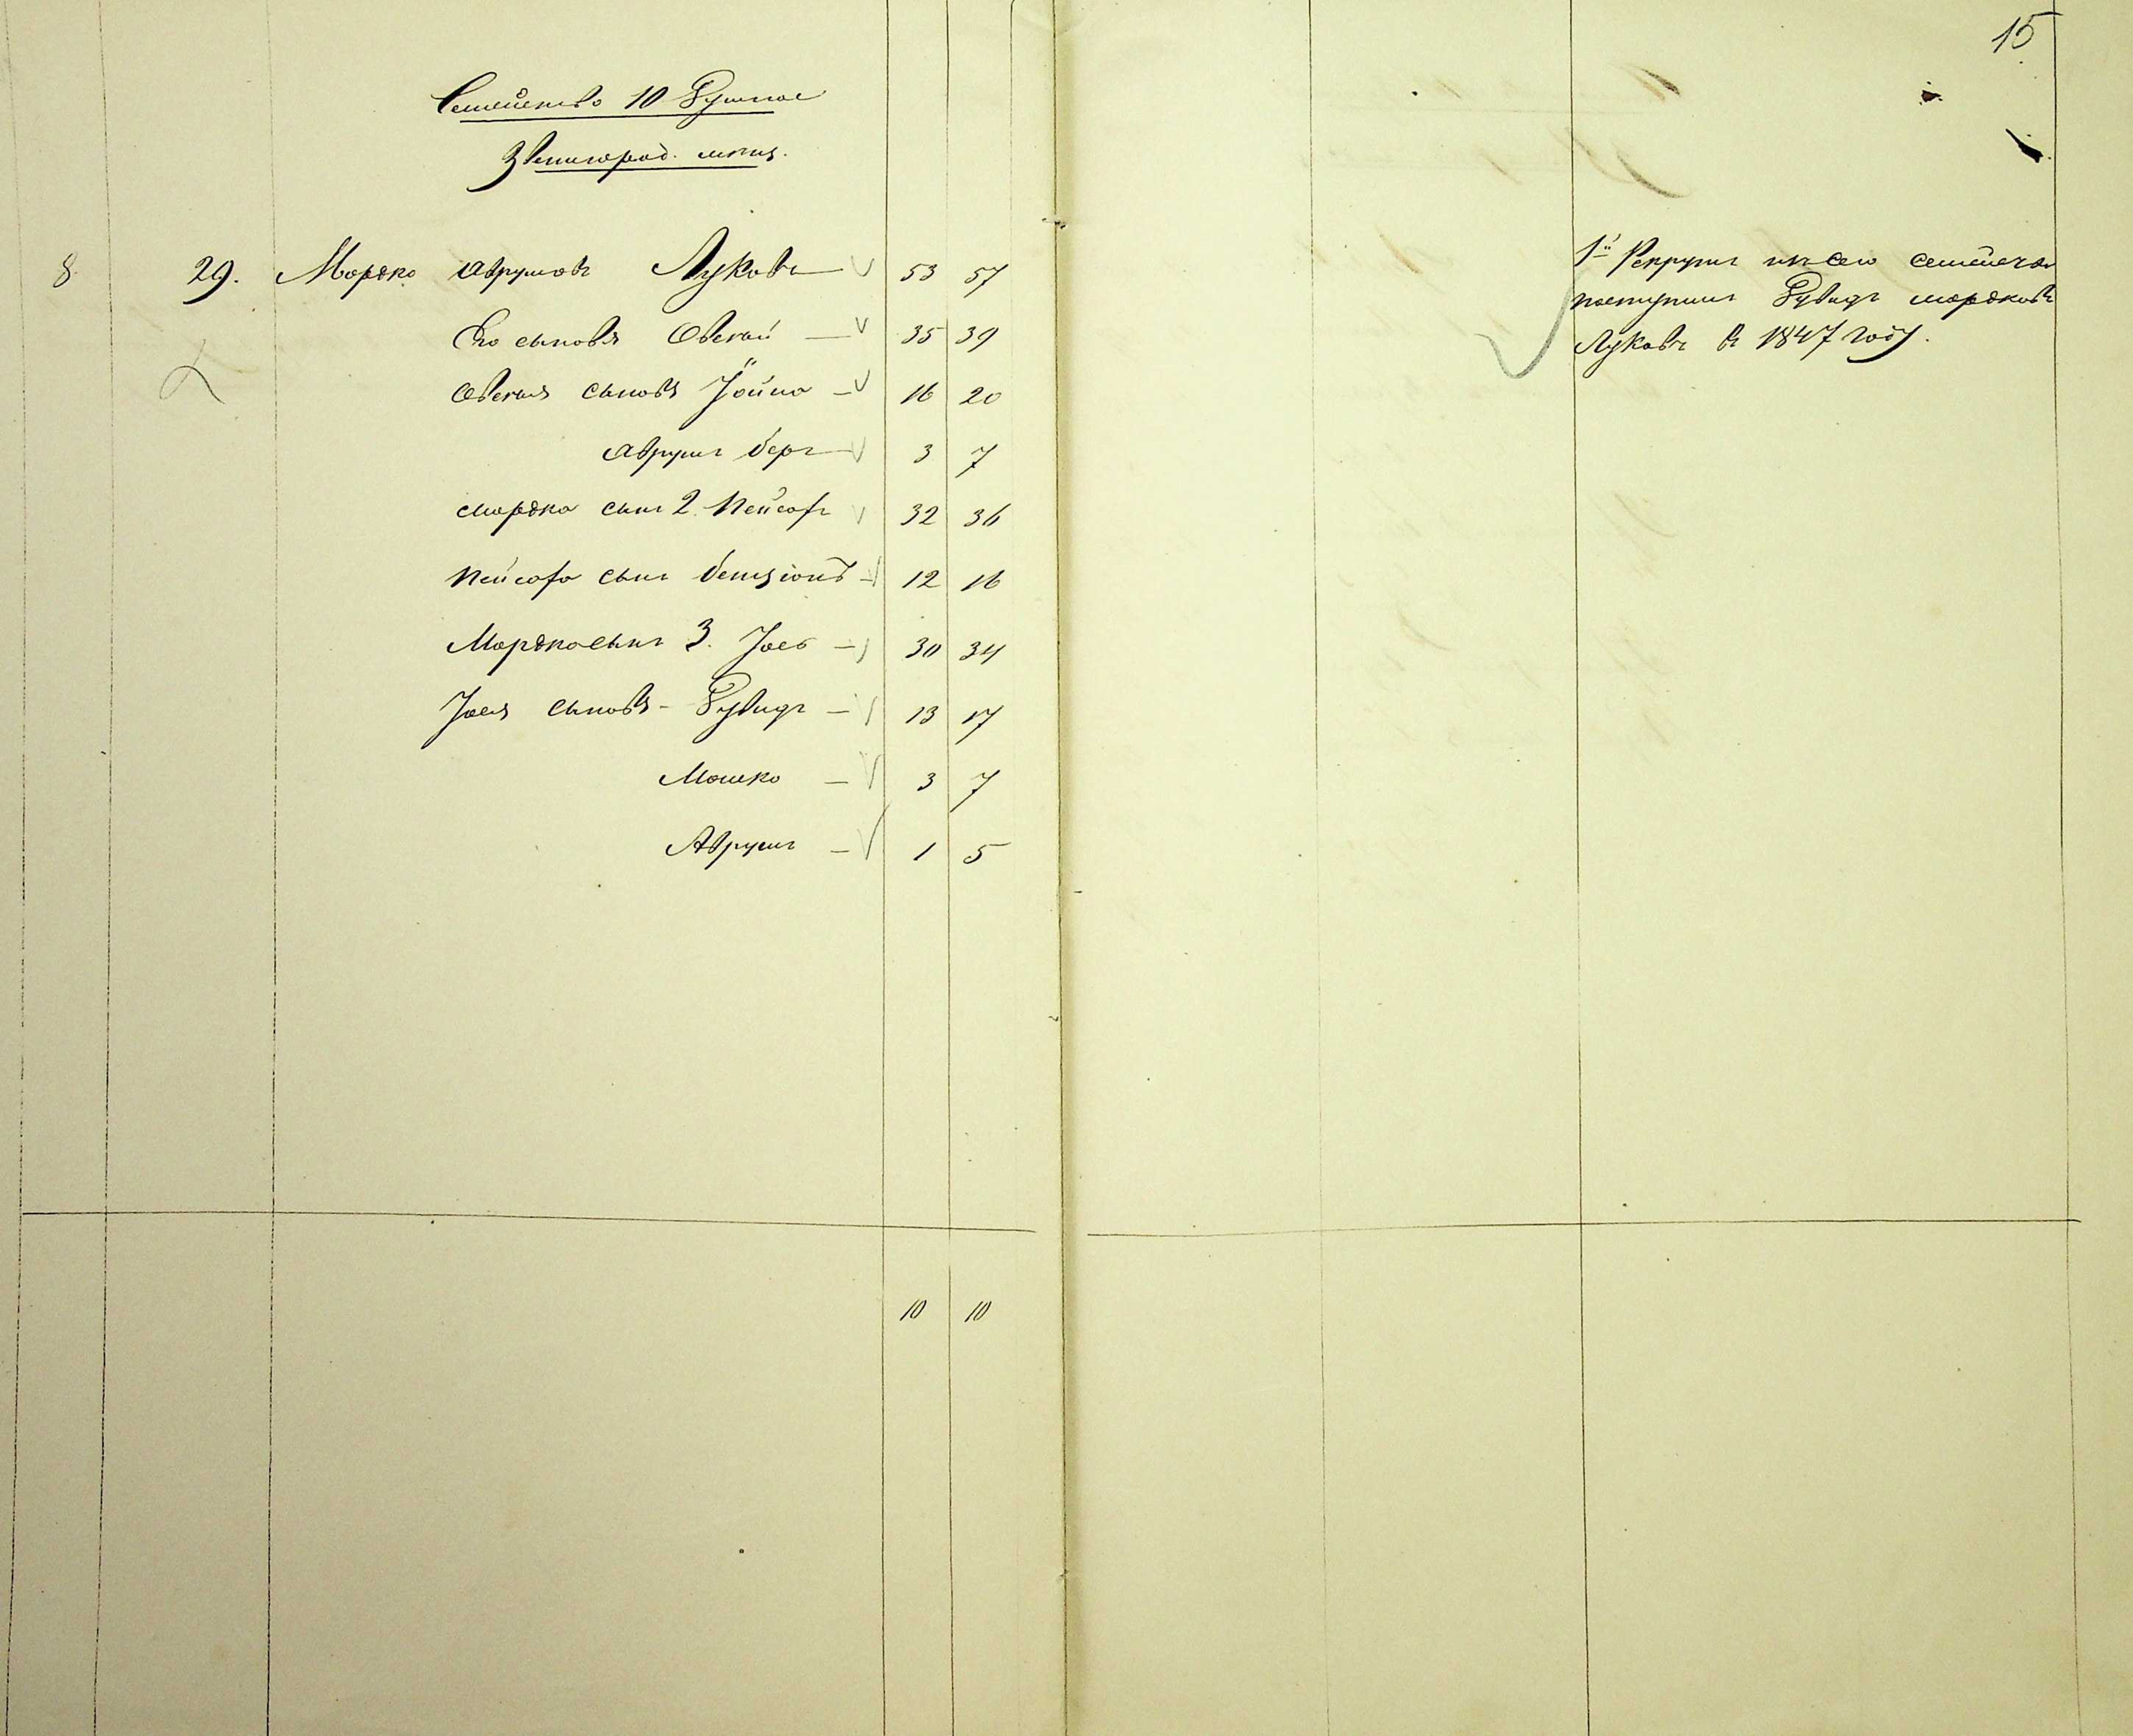 15
Семейство 10 Душное
Звенигород. мѣщ.
8 29. Мордко Аврумовъ Луковъ 53 57
Его сыновья Овсѣй 35 39
Овсѣя сыновья Іойна 16 20
Аврумъ Беръ 3 7
Мордка сынъ 2. Пейсахъ 32 36
Пейсаха сынъ Бенціонъ 12 16
Мордка сынъ 3. Іось 30 34
Іося сыновья Дувидъ 13 17
Мошко 3 7
Аврумъ 1 5
10 10
1й Рекрутъ изъ сего семейства
поступилъ Дувидъ Мордковъ
Луковъ въ 1847 году.